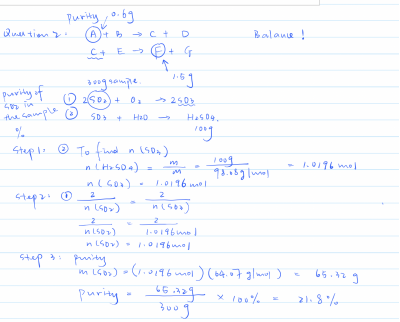 purity 0.6g
Question 2: A + B → C + D Balance!
C + E → F + G
1.5g
300g sample.
purity of SO2 in the sample %
① 2SO2 + O2 → 2SO3
② SO3 + H2O → H2SO4.
100g
Step 1: ② To find n(SO3)
n(H2SO4) = m/m = 100g/98.08g/mol = 1.0196mol
n(SO3) = 1.0196mol
Step 2: ① 2/n(SO2) = 2/n(SO3)
2/n(SO2) = 2/1.0196mol
n(SO2) = 1.0196mol
Step 3: purity
m(SO2) = (1.0196mol)(64.07g/mol) = 65.32g
Purity = 65.32g/300g × 100% = 21.8%